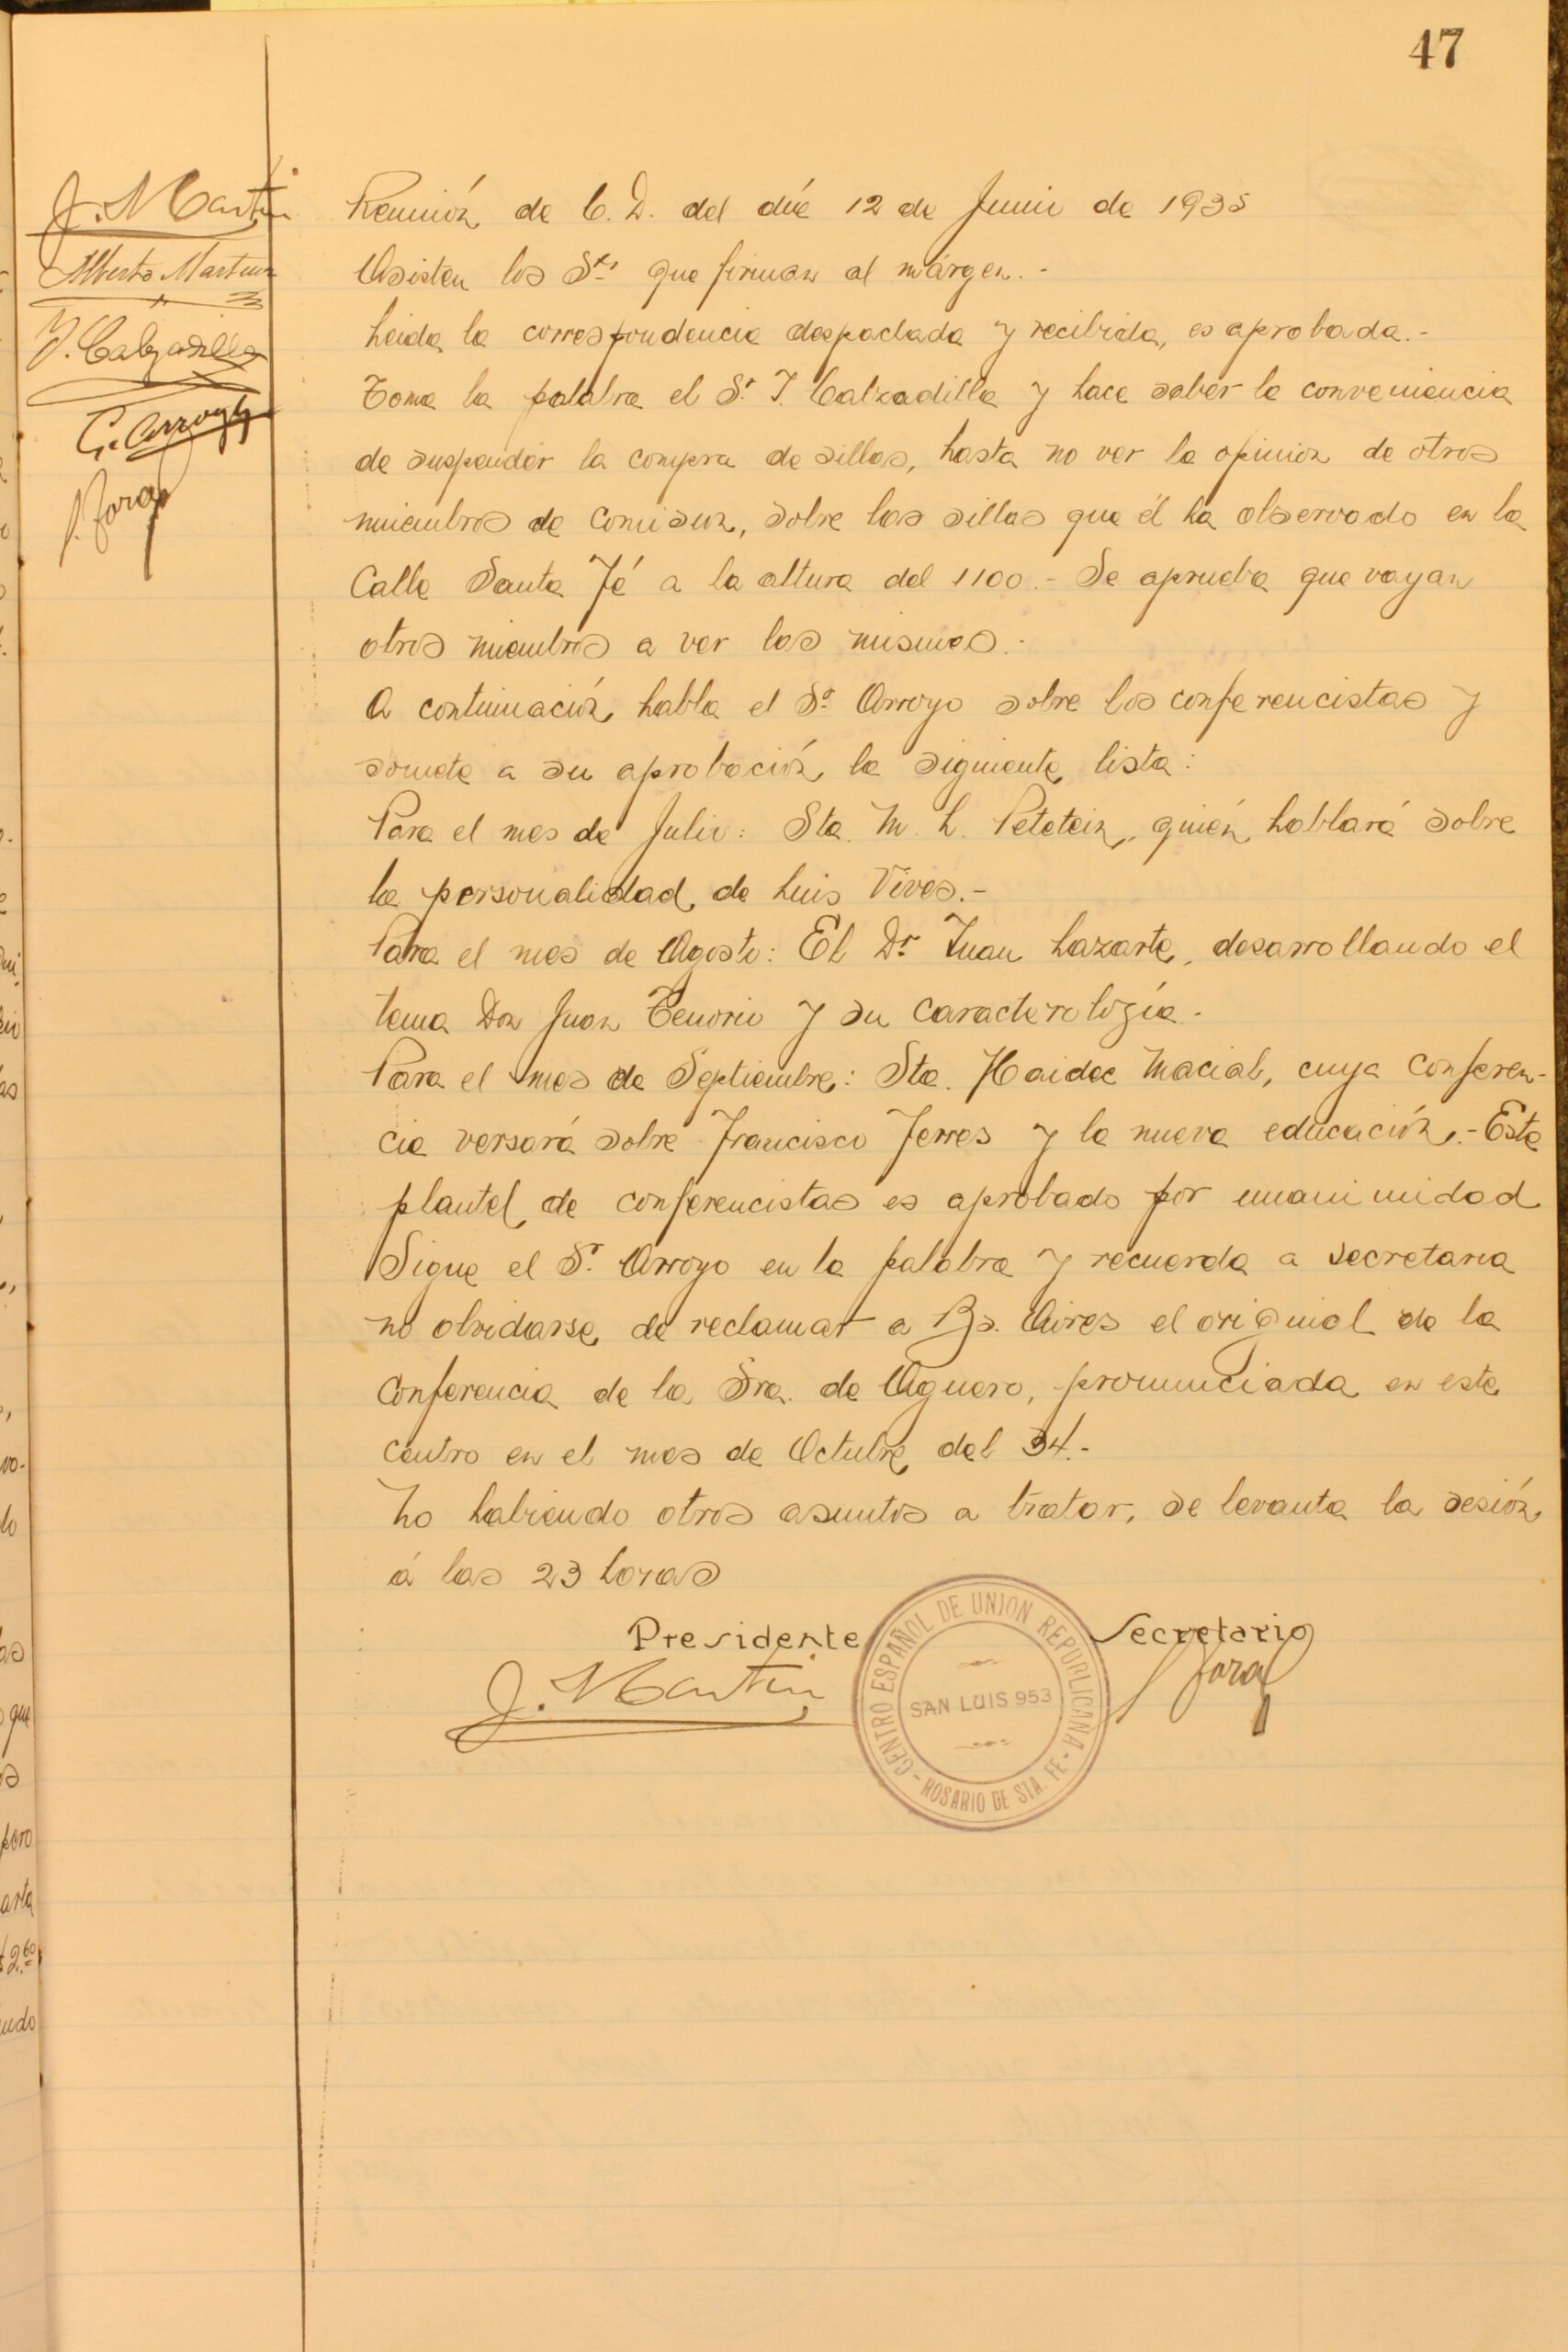 47
J. Martin
Alberto Martinez
I. Calzadilla
G. Arroyo
Reunión de C. D. del día 12 de Junio de 1935
Asisten los Sres que firman al márgen.-
Leida la correspondencia despachada y recibida, es aprobada.-
Toma la palabra el Sr. I. Calzadilla y hace saber la conveniencia
de suspender la compra de sillas, hasta no ver la opinion de otros
miembros de Comision, sobre las sillas que él ha observado en la
Calle Santa Fé a la altura del 1100.- Se aprueba que vayan
otros miembros a ver las mismas.-
A continuación habla el Sr. Arroyo sobre los conferencistas y
somete a su aprobación la siguiente lista:
Para el mes de Julio: Sta. M. L. Petetein, quién hablará sobre
la personalidad de Luis Vives.-
Para el mes de Agosto: El Dr. Juan Lazarte, desarrollando el
tema Don Juan Tenorio y su Caracterología.-
Para el mes de Septiembre: Sta. Haidee Macial, cuya Conferen-
cia versará sobre Francisco Ferres y la nueva educación.- Este
plantel de conferencistas es aprobado por unanimidad
Sigue el Sr. Arroyo en la palabra y recuerda a Secretaria
no olvidarse de reclamar a Bs. Aires el original de la
Conferencia de la Sra. de Aguero, pronunciada en este
Centro en el mes de Octubre del 34.-
No habiendo otros asuntos a tratar, se levanta la sesión
á las 23 horas
Presidente Secretario
J. Martin
CENTRO ESPAÑOL DE UNION REPUBLICANA
SAN LUIS 953
- ROSARIO DE STA. FE -